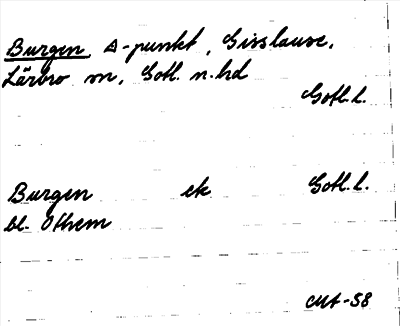 Burgen, Δ-punkt, Gisslause,
Lärbro sn, Gotl. n. hd
Gotl. l.
Burgen ek Gotl. l.
bl. Othem
MA-58